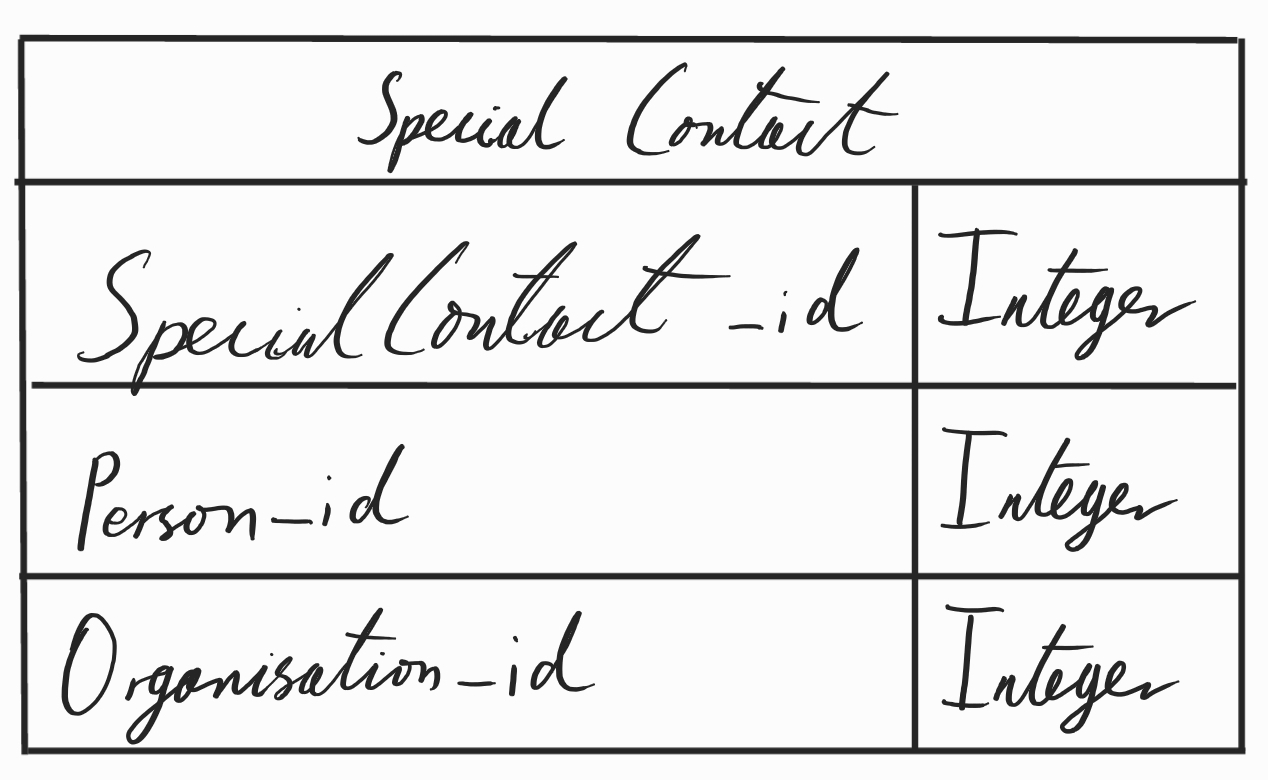 Special Contact
SpecialContact_id Integer
Person_id Integer
Organisation_id Integer